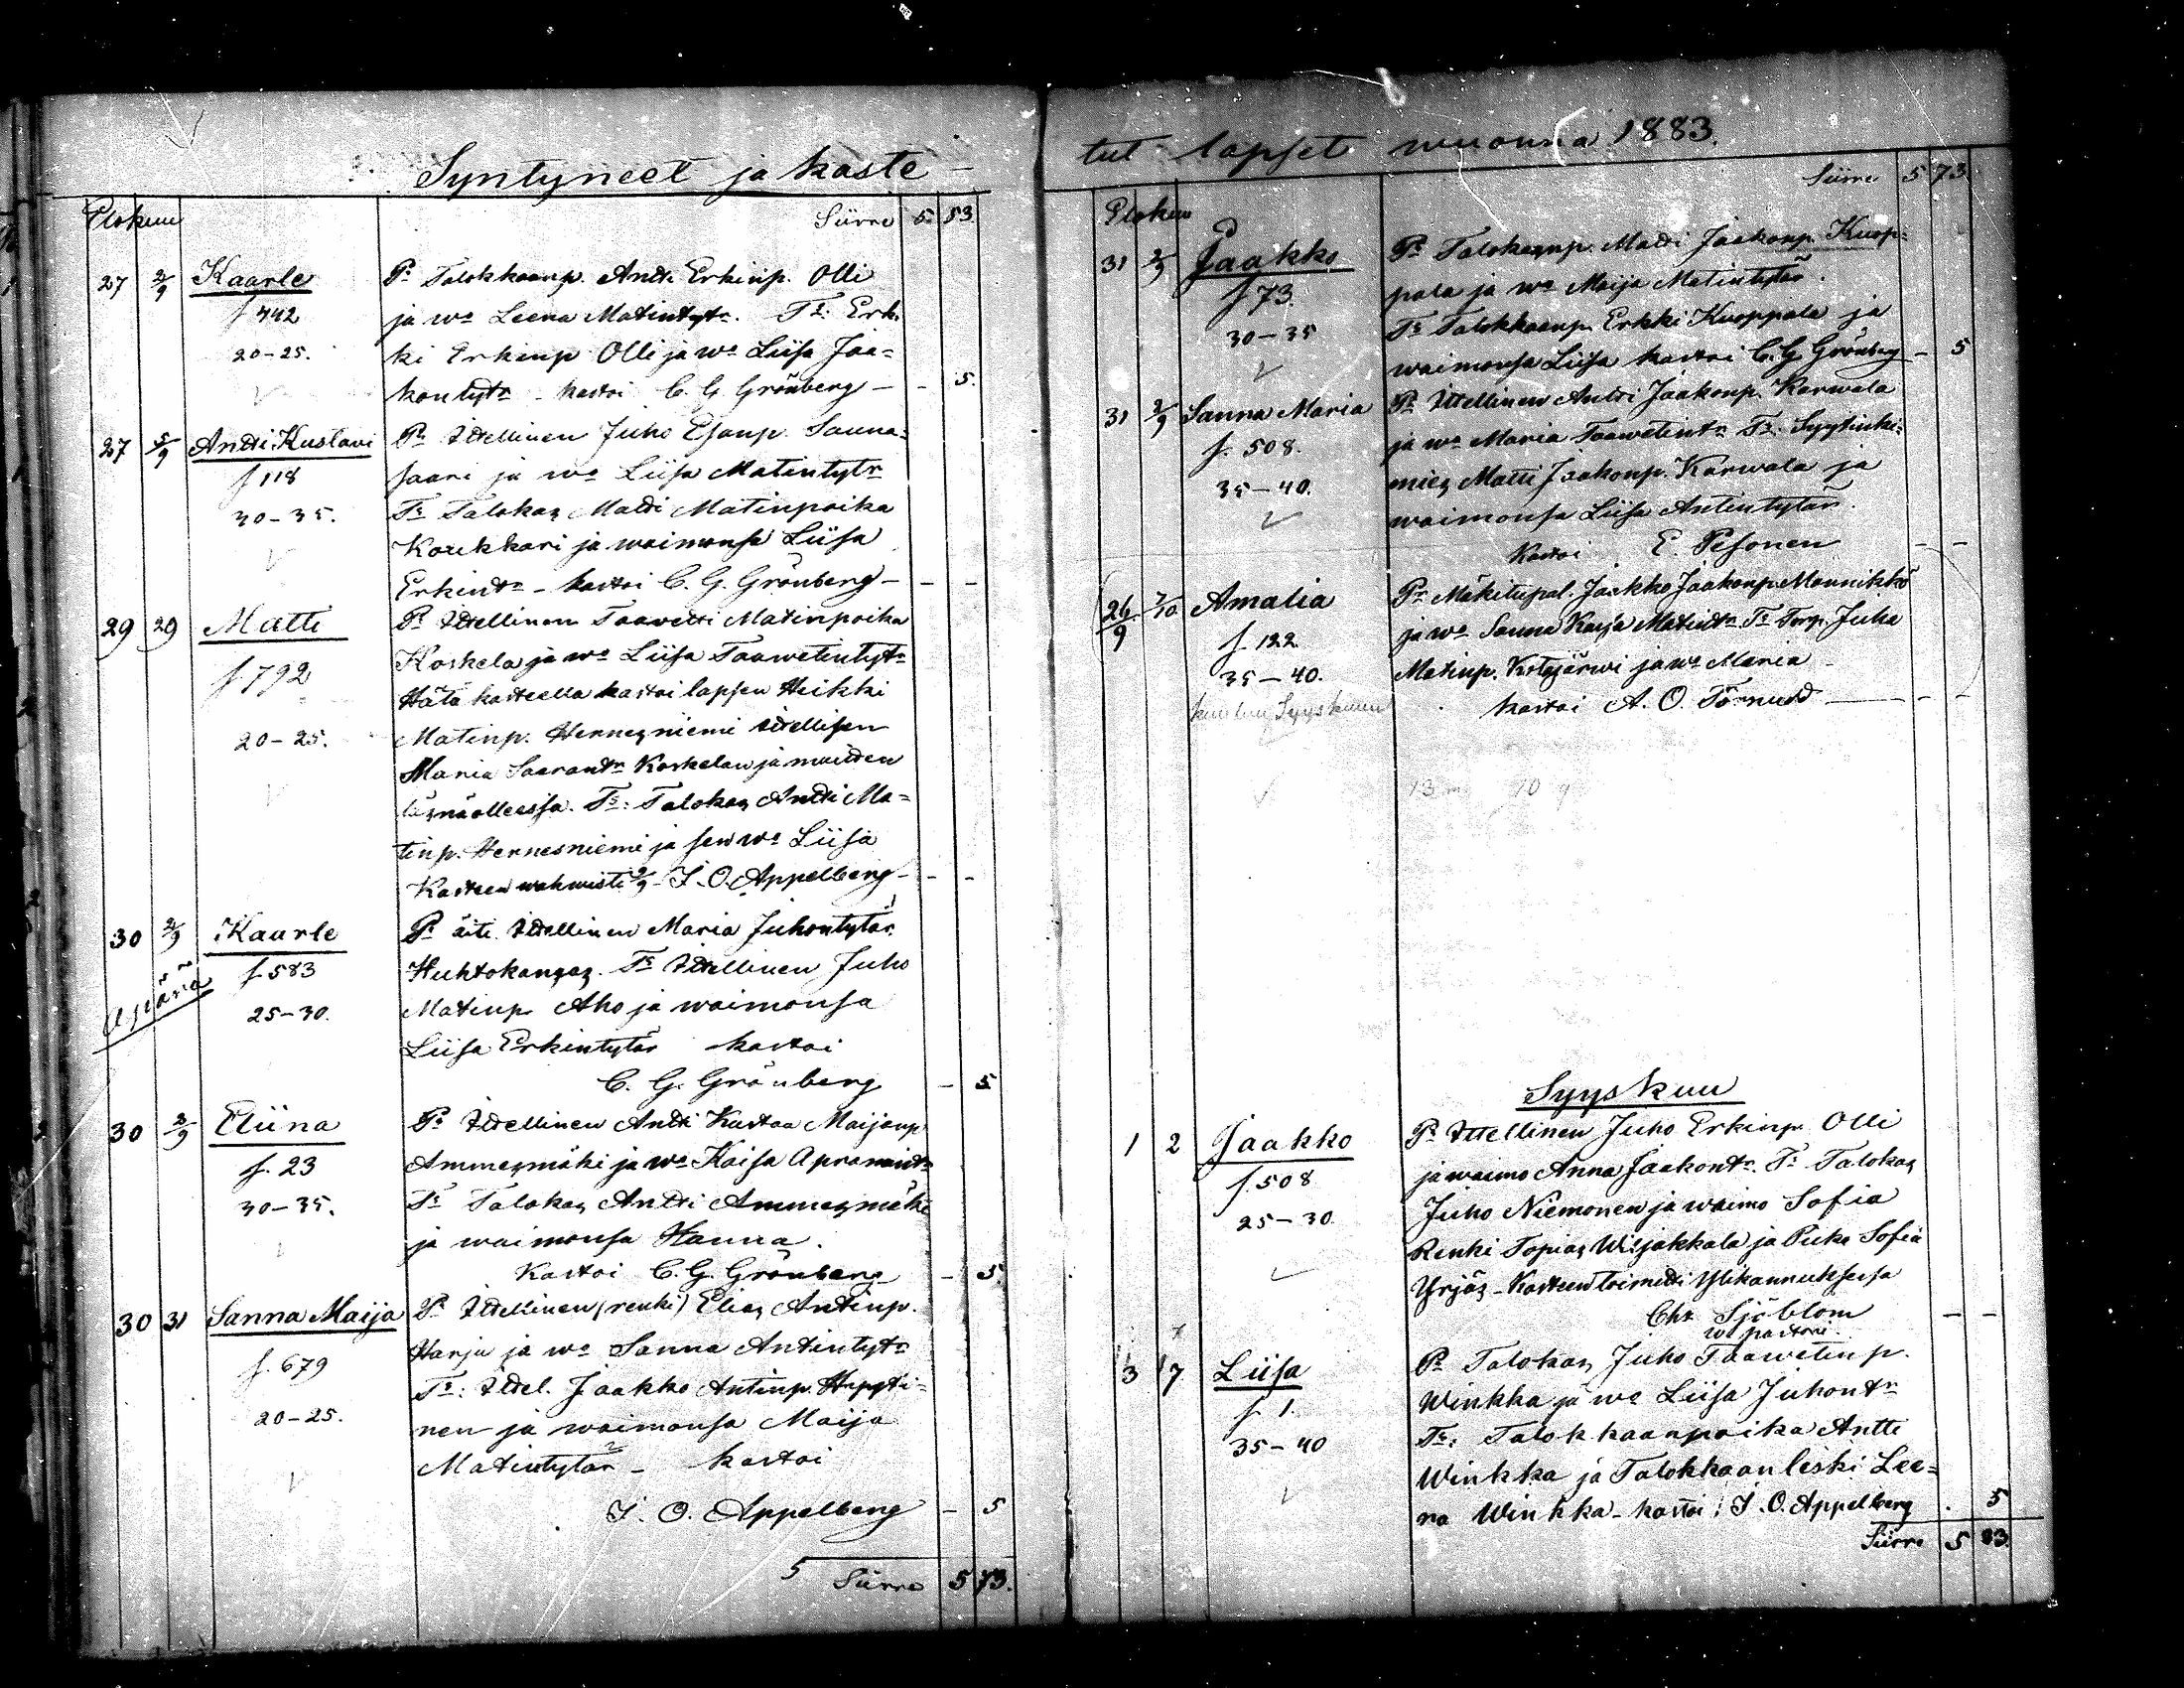 Syntyneet ja kaste-
Elokuu
Siirre 5. 53.
27 2/9 Kaarle
f 442
20-25.
Pr Talokkaanp. Antti Erkinp. Olli
ja wo Leena Matintytr. Tr: Erk-
ki Erkinp Olli ja wo Liisa Jaa-
kontytr - kastoi C. G. Grönberg - - 5.
27 5/9 Antti Kustavi
f 118
30-35.
Pr Itellinen Juho Esanp. Sauna-
saari ja wo Liisa Matintytr
Tr Talokas Matti Matinpoika
Koukkari ja waimonsa Liisa
Erkintr - kastoi C. G. Grönberg - - -
29 29 Matti
f 792
20-25.
Pr Itellinen Taavetti Matinpoika
Koskela ja wo Liisa Taawetintytr
Hätä kasteella kastoi lapsen Heikki
Matinp. Hennesniemi itellisen
Maria Saarantr Koskelan ja muiden
läsnäolleessa. Tr: Talokas Antti Ma-
tinp. Hennesniemi ja sen wo Liisa
Kasteen wahwisti 2/9 - J. O. Appelberg - - -
30 2/9 Kaarle
f 583
25-30.
Apärä
Pr äiti Itellinen Maria Juhontytär
Huhtokangas. Tr Itellinen Juho
Matinp Aho ja waimonsa
Liisa Erkintytär kastoi
C. G. Grönberg - 5
30 2/9 Eliina
f. 23
30-35.
Pr Itellinen Antti Kustaa Maijanp
Ammesmäki ja wo Kaisa Apramintr
Tr Talokas Antti Ammesmäki
ja waimonsa Hanna.
Kastoi C. G. Grönberg - 5.
30 31 Sanna Maija
f. 679
20-25.
Pr Itellinen (renki) Elias Antinp.
Harju ja wo Sanna Antintytr
Tr: Itel. Jaakko Antinp. Heppti-
nen ja waimonsa Maija
Matintytär - kastoi
J. O. Appelberg - 5
5 Siirre 5 73.
tut lapset wuonna 1883.
Elokuu
Siirre 5 73
31 2/9 Jaakko
f 73.
30-35
Pr Talokasnp. Matti Jaakonp. Kuop-
pala ja wo Maija Matintytär.
Tr Talokkaanp Erkki Kuoppala ja
waimonsa Liisa kastoi C. G. Grönberg - 5
31 2/9 Sanna Maria
f. 508.
35-40.
Pr Itellinen Antti Jaakonp. Karwala
ja wo Maria Taawetintr Tr: Syytinki-
mies Matti Jaakonp. Karwala ja
waimonsa Liisa Antintytär.
Kastoi E. Pesonen - -
26/9 7/10 Amalia
f. 122
35-40.
kuuluu Syyskuun
Pr Mäkitupal. Jaakko Jaakonp. Mannikkö
ja wo Sanna Kaisa Matintr. Tr Torp. Juho
Matinp. Kotajärwi ja wo Maria
kastoi A. O. Törnudd - -
13 m 10 q
Syyskuu
1 2 Jaakko
f. 508
25-30.
Pr Itellinen Juho Erkinp Olli
ja waimo Anna Jaakontr. Tr Talokas
Juho Niemonen ja waimo Sofia
Renki Topias Wiljakkala ja Piika Sofia
Yrjäs - Kasteen toimitti Ylikannuksessa
Chr Sjöblom - -
w. pastori.
3 7 Liisa
f. 1.
35-40
Pr Talokas Juho Taawetinp.
Winkka ja wo Liisa Juhontr
Tr: Talokkaanpoika Antti
Winkka ja Talokkaan leski Lee-
na Winkka - kastoi: J. O. Appelberg . 5
Siirre 5 83.